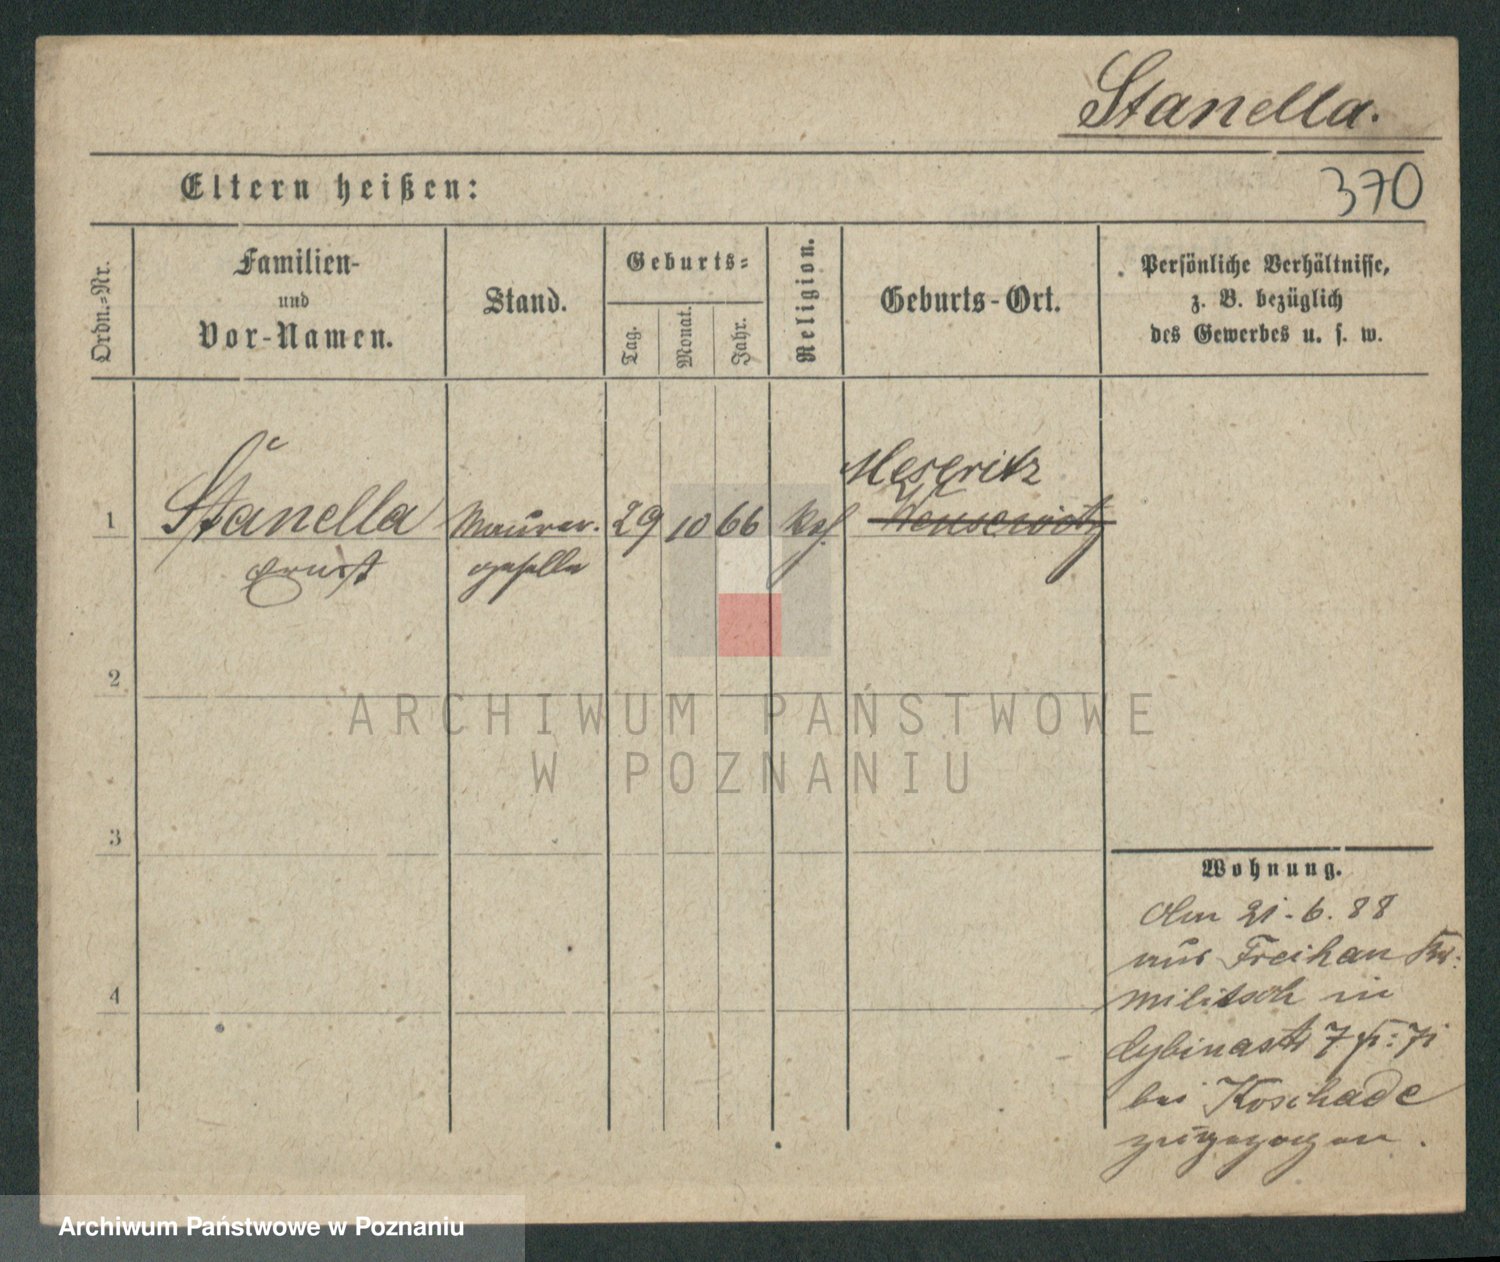 Stanella.
370
Eltern heißen:
Ordn.-Nr.
Familien-
und
Vor-Namen.
Stand.
Geburts-
Tag.
Monat.
Jahr.
Religion.
Geburts-Ort.
Persönliche Verhältnisse,
z. B. bezüglich
des Gewerbes u. s. w.
Meseritz
1 Stanella Maurer- 29 10 66 kaf
Ernst geselle
2
3
4
Wohnung.
Am 21.6.88
aus Freihan Kr.
Militsch in
bei Koschade
zugezogen.
ARCHIWUM PAŃSTWOWE
W POZNANIU
Archiwum Państwowe w Poznaniu